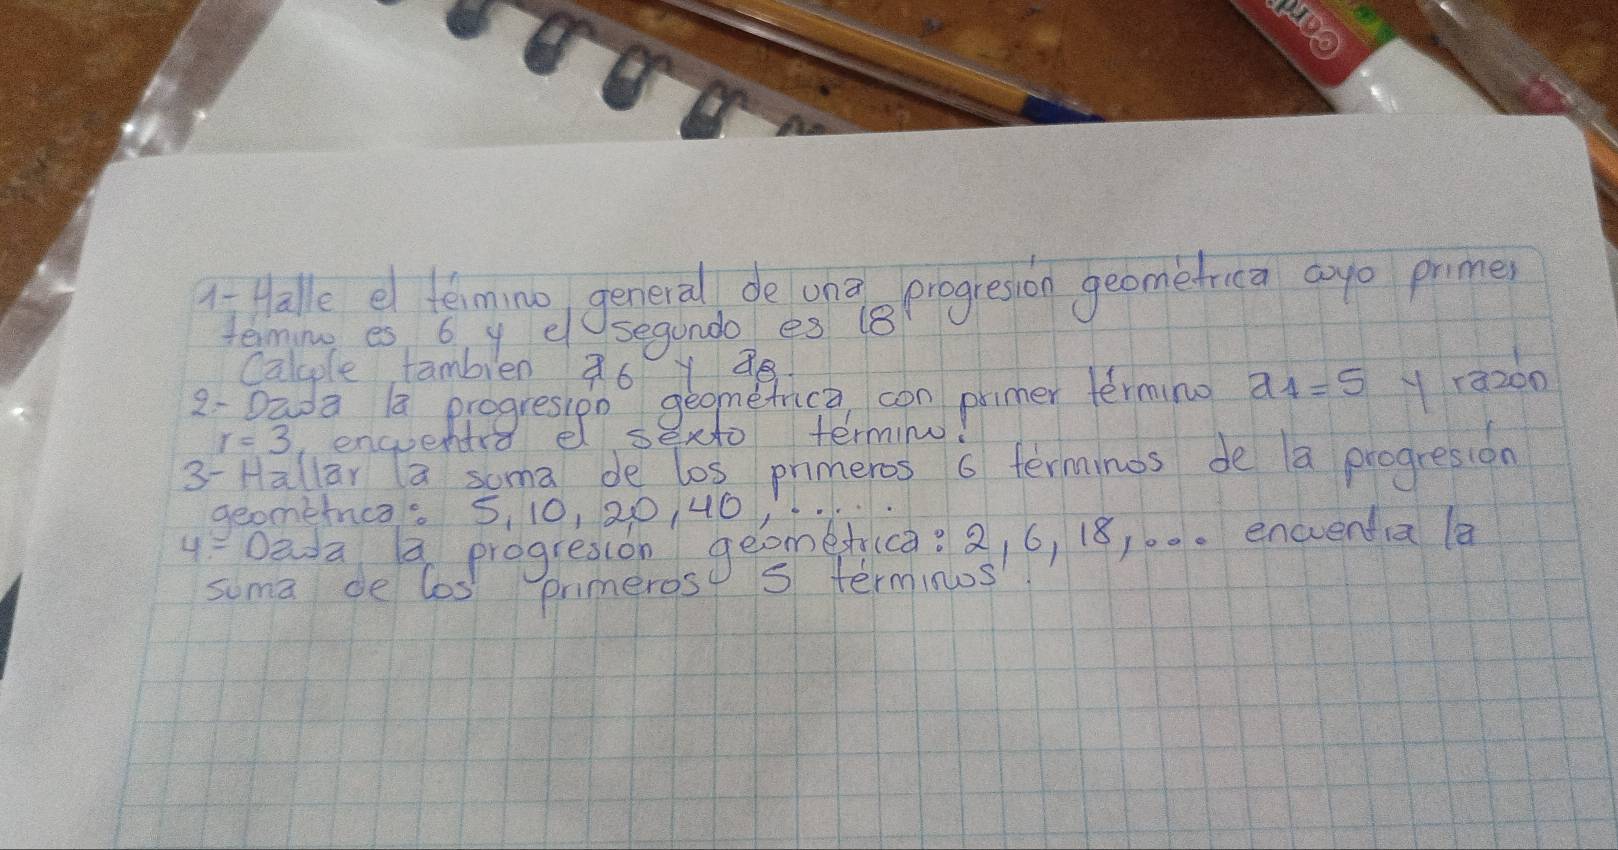 Cardi
1- Halle el término general de una progresión geométrica cuyo primer
termino es 6 y el segundo es 18
Calcule tambien a6 y a8.
2.- Dada la progresion geométrica, con primer término a1 = 5 y razón
r = 3, encuentra el sexto término.
3- Hallar la suma de los primeros 6 términos de la progresión
geométrica: 5, 10, 20, 40, .....
4.- Dada la progresión geométrica: 2, 6, 18, .... encuentra la
suma de los primeros 5 términos.